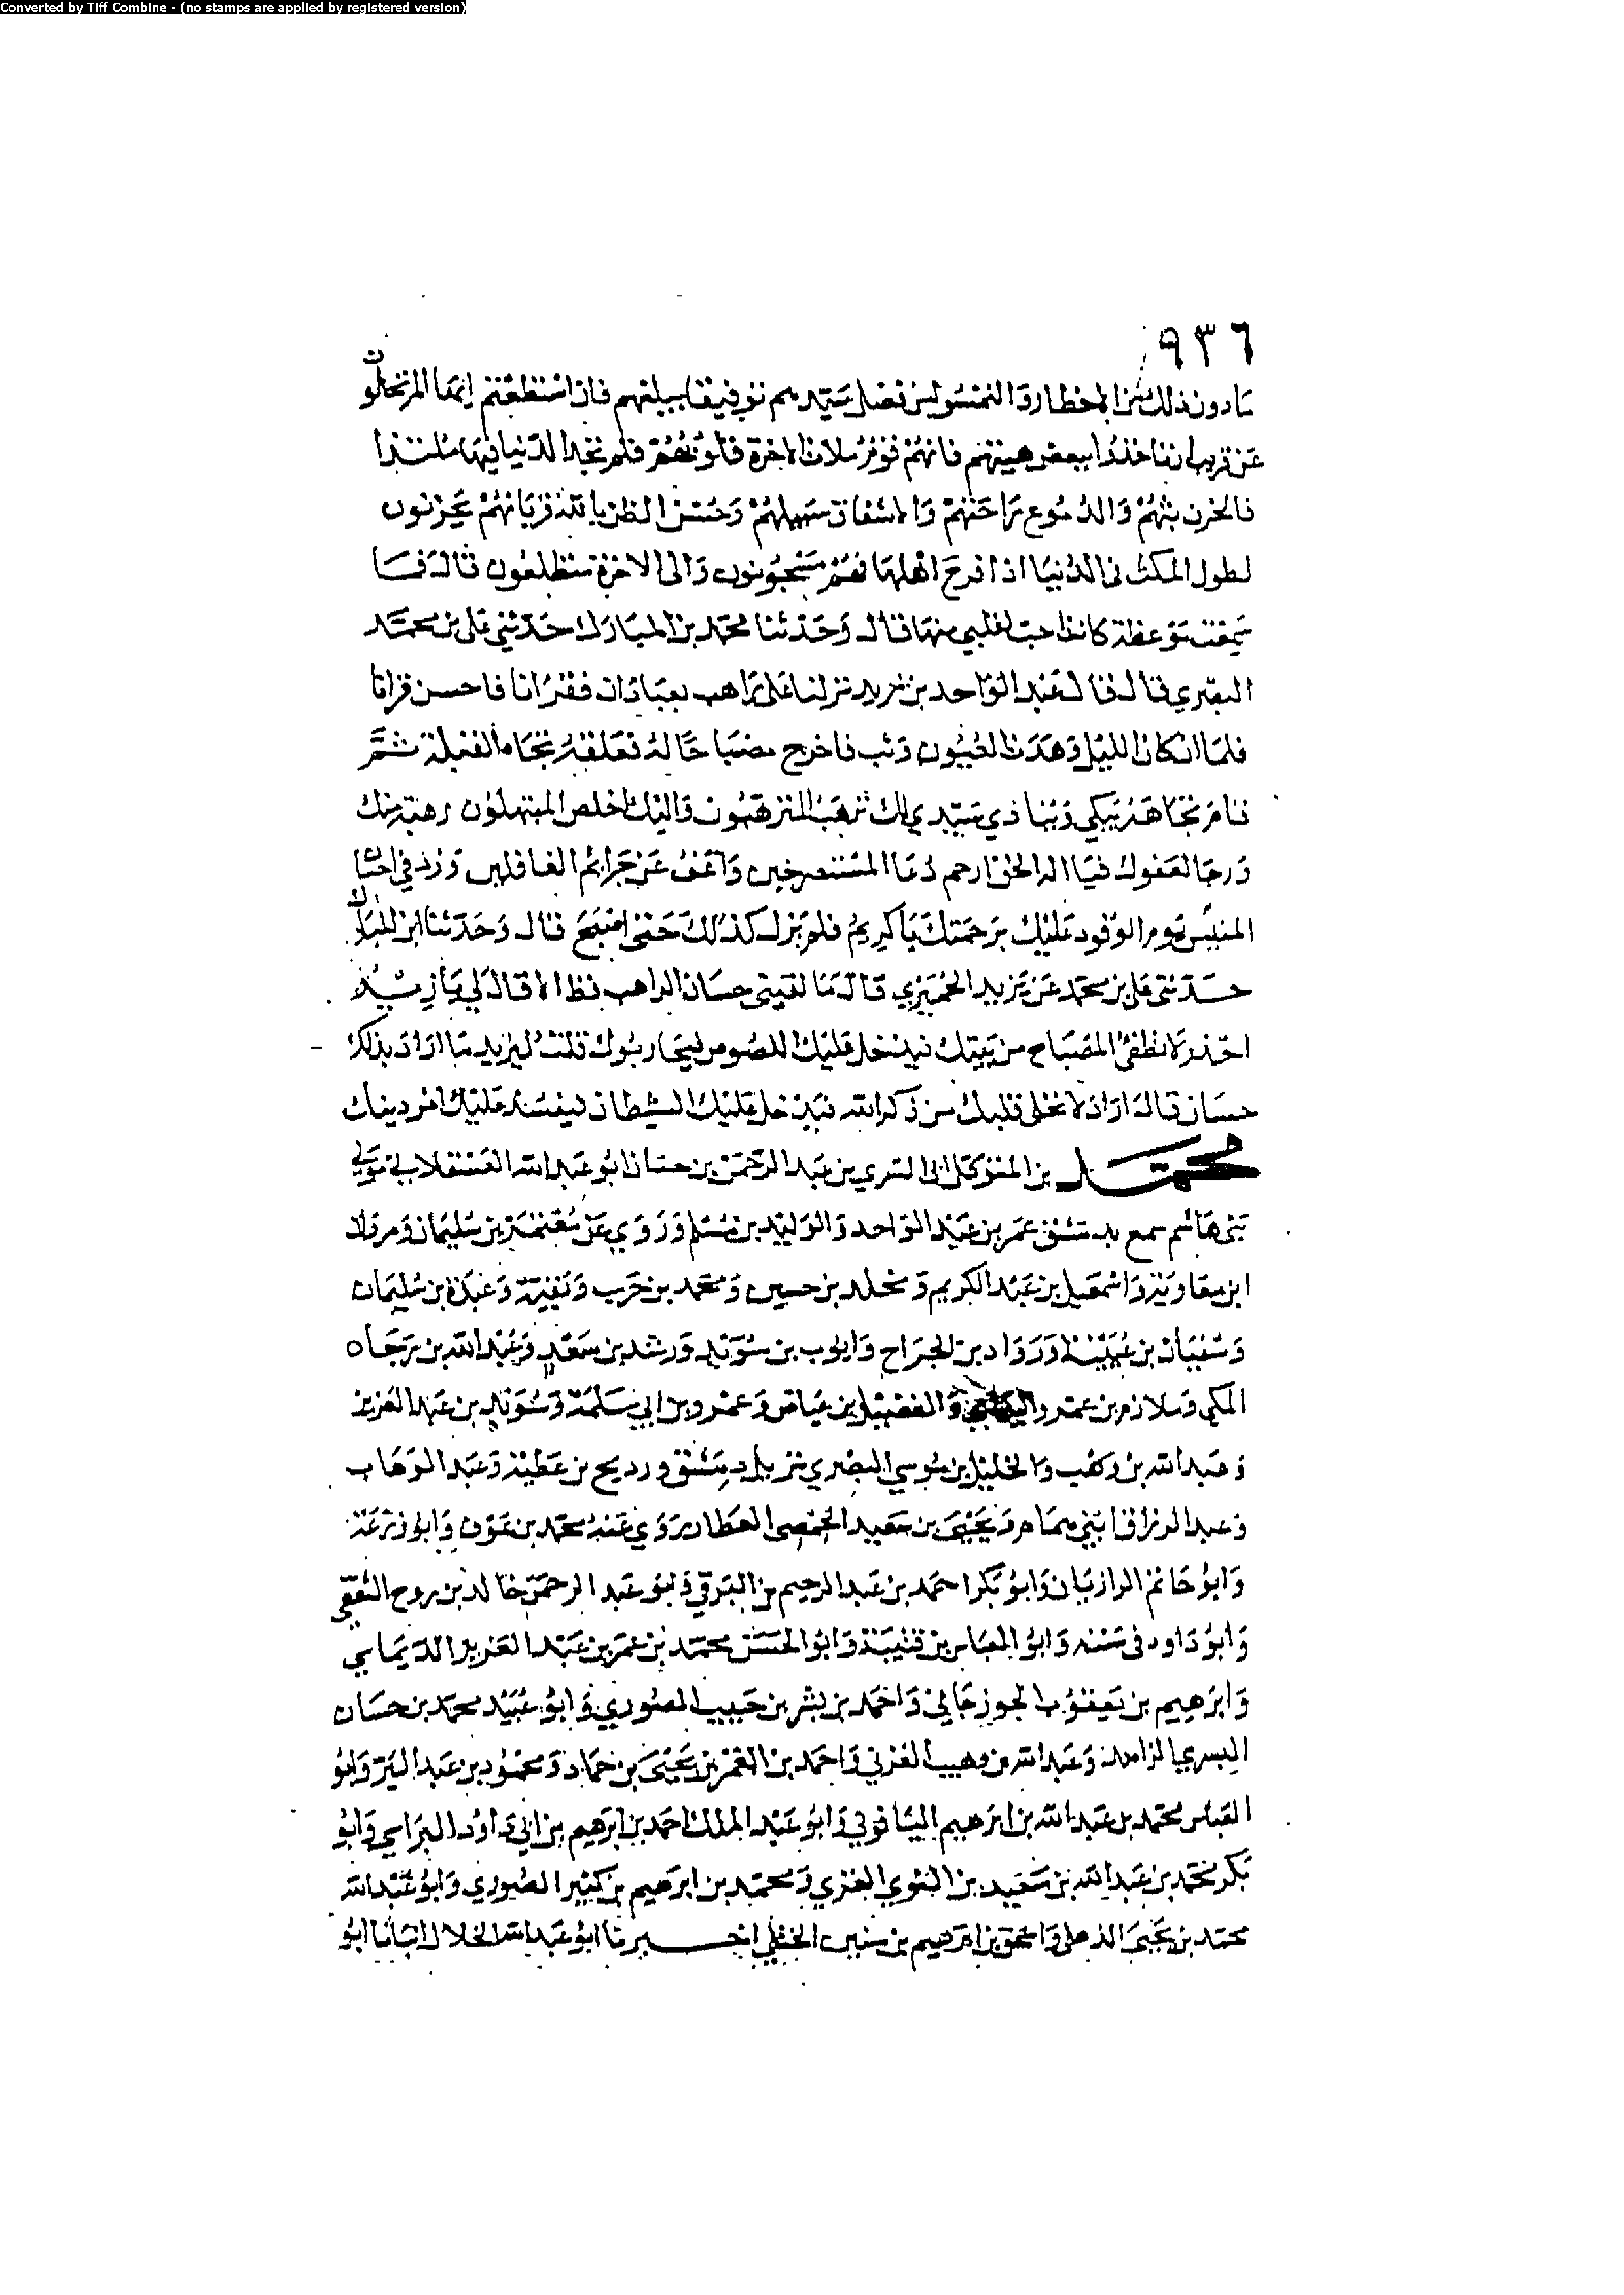 Converted by Tiff Combine - (no stamps are applied by registered version)
٩٣٦
ما دون ذلك من الاخطار والتمسوا من فضل سيدهم توفيقا يبلغهم فان استطعتم ايها المرتحلون
عن قريب ان تاخذوا ببعض هم فانهم قوم ملات الاخرة قلوبهم فلم تجد الدنيا فيها ملتذا
فالحزن بثهم والدموع راحتهم والاشفاق سبيلهم وحسن الظن بالله قربانهم يحزنون
لطول المكث في الدنيا اذا فرح اهلها فهم مسجونون والى الاخرة متطلعون قال فما
سمعت موعظة كانت احب لقلبي منها قال وحدثنا محمد بن المبارك حدثني علي بن محمد
البصري قال قال عبد الواحد بن زيد نزلنا على راهب بعبادان فقرانا فاحسن قرانا
فلما ان كان الليل وهدت العيون وثب فاخرج مصباحا له فعلقه تجاه القبلة ثم
قام تجاهه يبكي وينادي سيدي لك ترهب المترهبون واليك اخلص المبتهلون رهبة منك
ورجا لعفوك فيا اله الحق ارحم دعا المستصرخين واعف عن جرائم الغافلين وزد في احسان
المنيبين يوم الوفود عليك برحمتك يا كريم فلم يزل كذلك حتى اصبح قال وحدثنا ابن المبارك
حدثني علي بن محمد عن يزيد الحميري قال ما لقيني حسان الراهب قط الا قال لي يا زيد
احذر لا تطفئ المصباح من بيتك فيدخل عليك اللصوص قلت ليزيد ما اراد بذلك
حسان قال اراد لا تخلي قلبك من ذكر الله فيدخل عليك الشيطان فيفسد عليك امر دينك
محمد بن المتوكل ابي السري بن عبد الرحمن بن حسان ابو عبد الله العسقلاني مولى
بني هاشم سمع بدمشق عمر بن عبد الواحد والوليد بن مسلم وروى عن معتمر بن سليمان ومروان
ابن معاوية واسمعيل بن عبد الكريم ومخلد بن حسين ومحمد بن حرب وبقية وعبدة بن سليمان
وسفيان بن عيينة ورواد بن الجراح وايوب بن سويد ورشد بن سعد وعبد الله بن رجاه
المكي وملازم بن عمرو والفضيل بن عياض وعمرو بن ابي سلمة وسويد بن عبد العزيز
وعبد الله بن وهب والخليل بن موسى البصري نزيل دمشق ورديح بن عطية وعبد الوهاب
وعبد الرزاق ابني همام ويحيى بن سعيد الحمصي العطار روى عنه محمد بن عوف وابو زرعة
وابو حاتم الرازيان وابو بكر احمد بن عبد الرحيم بن البرقي وابو عبد الرحمن خالد بن روح الثقفي
وابو داود في سننه وابو العباس بن قتيبة وابو الحسن محمد بن عمر بن عبد العزيز
وابرهيم بن يعقوب الجوزجاني واحمد بن بشر بن حبيب الصوري وابو عبيد محمد بن حسان
البسري الزاهد وعبد الله بن وهيب الغزي واحمد بن الغمر بن يحيى بن حماد ومحمود بن عبد البر وابو
العباس محمد بن عبد الله بن ابرهيم اليافوني وابو عبد الملك احمد بن ابرهيم وابو
بكر محمد بن عبد الله بن سعيد بن الغزي ومحمد بن ابرهيم بن كثير الصوري وابو عبد الله
محمد بن يحيى الذهلي واسحق بن ابرهيم بن سنين الختلي اخبرنا ابو عبد الله الخلال انبانا ابو